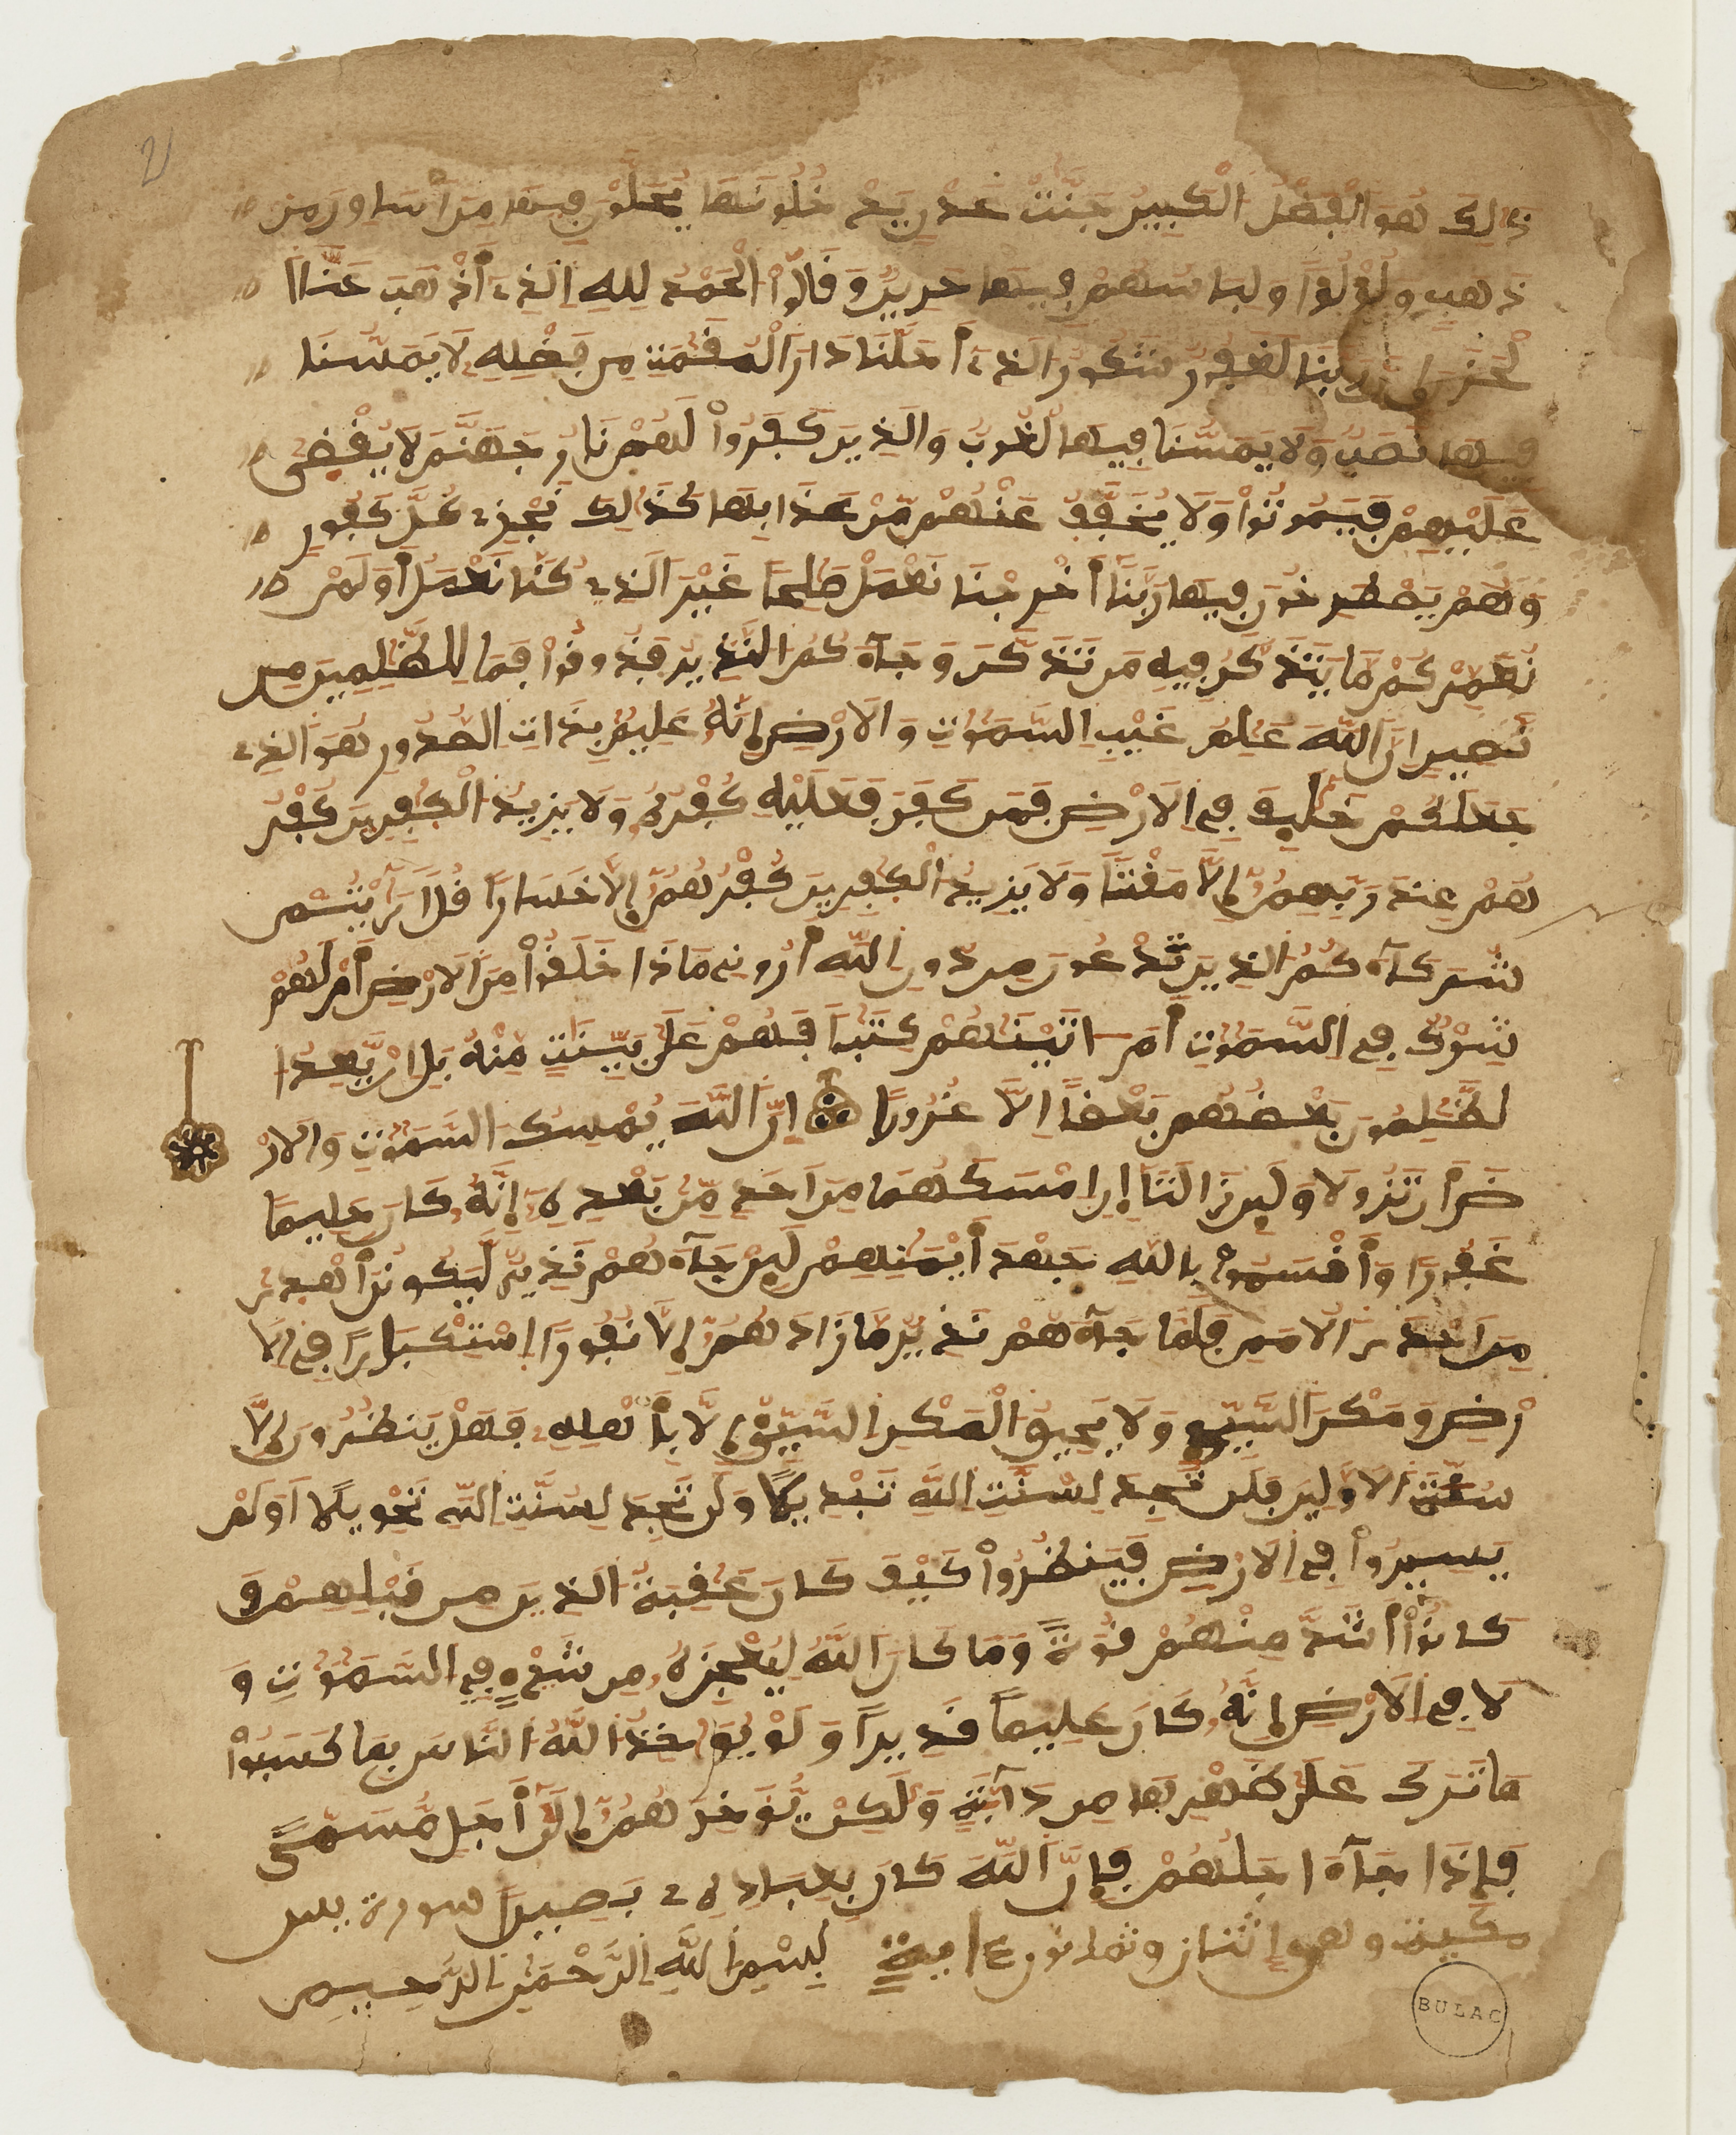 ذَٰلِكَ هُوَ ٱلْفَضْلُ ٱلْكَبِيرُ جَنَّٰتُ عَدْنٍ يَدْخُلُونَهَا يُحَلَّوْنَ فِيهَا مِنَ اَسَاوِرَ مِن
ذَهَبٍ وَلُؤْلُؤًا وَلِبَاسُهُمْ فِيهَا حَرِيرٌ وَقَالُوا۟ الْحَمْدُ لِلهِ اِلذِےٓ أَذْهَبَ عَنَّا ا
لْحَزَنَ إِنَّ رَبَّنَا لَغَفُورٌ شَكُورٌ اَلذِےٓ أَحَلَّنَا دَارَ اَلْمُقَامَةِ مِن فَضْلِهِ لَا يَمَسُّنَا
فِيهَا نَصَبٌ وَلَا يَمَسُّنَا فِيهَا لُغُوبٌ وَالَذِينَ كَفَرُوا۟ لَهُمْ نَارُ جَهَنَّمَ لَا يُقْضَىٰ
عَلَيْهِمْ فَيَمُوتُوا۟ وَلَا يُخَفَّفُ عَنْهُم مِّنْ عَذَابِهَا كَذَٰلِكَ نَجْزِے كُلَّ كَفُورٍ
وَهُمْ يَصْطَرِخُونَ فِيهَا رَبَّنَا أَخْرِجْنَا نَعْمَلْ صَٰلِحًا غَيْرَ اَلذِے كُنَّا نَعْمَلُ أَوَلَمْ
نُعَمِّرْكُم مَّا يَتَذَكَّرُ فِيهِ مَن تَذَكَّرَ وَجَآءَكُمُ النَّذِيرُ فَذُوقُوا۟ فَمَا لِلظَّٰلِمِينَ مِن
نَّصِيرٍ اِنَّ اَللَّهَ عَٰلِمُ غَيْبِ اِلسَّمَٰوَٰتِ وَالَارْضِ إِنَّهُۥ عَلِيمٌ بِذَاتِ اِلصُّدُورِ هُوَ اَلذِے
جَعَلَكُمْ خَلَٰٓئِفَ فِے اِلَارْضِ فَمَن كَفَرَ فَعَلَيْهِ كُفْرُهُۥ وَلَا يَزِيدُ اُلْكَٰفِرِينَ كُفْرُ
هُمْ عِندَ رَبِّهِمُۥٓ إِلَّا مَقْتًا وَلَا يَزِيدُ اُلْكَٰفِرِينَ كُفْرُهُمُۥٓ إِلَّا خَسَارًا قُلَ اَرَٰٓيْتُمْ
شُرَكَآءَكُمُ الذِينَ تَدْعُونَ مِن دُونِ اِللَّهِ أَرُونِے مَاذَا خَلَقُوا۟ مِنَ اَلَارْضِ أَمْ لَهُمْ
شِرْكٌ فِے اِلسَّمَٰوَٰتِ أَمَ اٰتَيْنَٰهُمْ كِتَٰبًا فَهُمْ عَلَىٰ بَيِّنَٰتٍ مِّنْهُ بَلِ اِنْ يَّعِدُ ا
لظَّٰلِمُونَ بَعْضُهُم بَعْضًا اِلَّا غُرُورًا إِنَّ اَللَّهَ يُمْسِكُ السَّمَٰوَٰتِ وَالَارْ
ضَ أَن تَزُولَا وَلَئِن زَالَتَآ إِنَ اَمْسَكَهُمَا مِنَ اَحَدٍ مِّنۢ بَعْدِهِۦٓ إِنَّهُۥ كَانَ حَلِيمًا
غَفُورًا وَأَقْسَمُوا۟ بِاللَّهِ جَهْدَ أَيْمَٰنِهِمْ لَئِن جَآءَهُمْ نَذِيرٌ لَّيَكُونُنَّ أَهْدَىٰ
مِنِ اِحْدَى اَلُامَمِ فَلَمَّا جَآءَهُمْ نَذِيرٌ مَّا زَادَهُمُۥٓ إِلَّا نُفُورًا اِسْتِكْبَارًا فِے اِلَا
رْضِ وَمَكْرَ اَلسَّيِّئِ وَلَا يَحِيقُ الْمَكْرُ السَّيِّئُ إِلَّا بِأَهْلِهِۦ فَهَلْ يَنظُرُونَ إِلَّا
سُنَّتَ اَلَاوَّلِينَ فَلَن تَجِدَ لِسُنَّتِ اِللَّهِ تَبْدِيلًا وَلَن تَجِدَ لِسُنَّتِ اِللَّهِ تَحْوِيلًا اَوَلَمْ
يَسِيرُوا۟ فِے اِلَارْضِ فَيَنظُرُوا۟ كَيْفَ كَانَ عَٰقِبَةُ الذِينَ مِن قَبْلِهِمْ وَ
كَانُوٓا۟ أَشَدَّ مِنْهُمْ قُوَّةً وَمَا كَانَ اَللَّهُ لِيُعْجِزَهُۥ مِن شَےْءٍ فِے اِلسَّمَٰوَٰتِ وَ
لَا فِے اِلَارْضِ إِنَّهُۥ كَانَ عَلِيمًا قَدِيرًا وَلَوْ يُؤَاخِذُ اللَّهُ النَّاسَ بِمَا كَسَبُوا۟
مَا تَرَكَ عَلَىٰ ظَهْرِهَا مِن دَآبَّةٍ وَلَٰكِنْ يُّؤَخِّرُهُمُۥٓ إِلَىٰٓ أَجَلٍ مُّسَمًّى
فَإِذَا جَآءَ اجَلُهُمْ فَإِنَّ اَللَّهَ كَانَ بِعِبَادِهِۦ بَصِيرًا سورة يس
مكية وهي إثنان وثمانون ءاية بِسْمِ اِللَّهِ اِلرَّحْمَٰنِ اِلرَّحِيمِ
BULAC